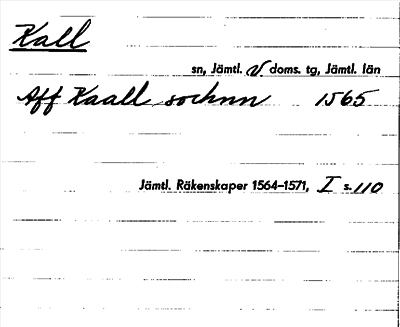 Kall
sn, Jämtl. V doms. tg, Jämtl. län
Aff Kaall sochnn 1565
Jämtl. Räkenskaper 1564–1571, I s. 110